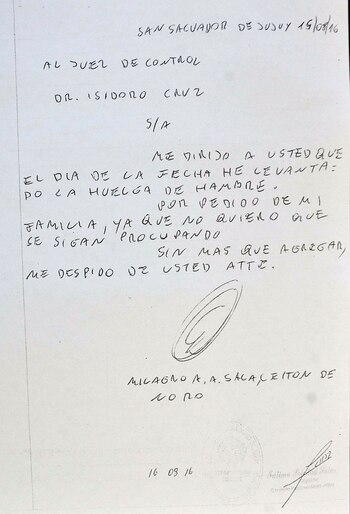 SAN SALVADOR DE JUJUY 15/03/16
AL JUEZ DE CONTROL
DR. ISIDORO CRUZ
S/A
ME DIRIJO A USTED QUE
EL DIA DE LA FECHA HE LEVANTA-
DO LA HUELGA DE HAMBRE.
POR PEDIDO DE MI
FAMILIA, YA QUE NO QUIERO QUE
SE SIGAN PROCUPANDO
SIN MAS QUE AGREGAR,
ME DESPIDO DE USTED ATTE.
MILAGRO A. A. SALA, LEITON DE
NORO
16 03 16